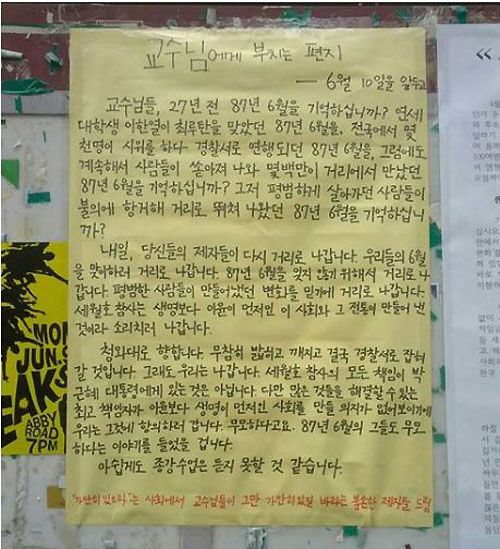 교수님에게 부치는 편지
— 6월 10일을 앞두고
교수님들, 27년 전 87년 6월을 기억하십니까? 연세
대학생 이한열이 최루탄을 맞았던 87년 6월을, 전국에서 몇
천명이 시위를 하다 경찰서로 연행되던 87년 6월을, 그럼에도
계속해서 사람들이 쏟아져 나와 몇백만이 거리에서 만났던
87년 6월을 기억하십니까? 그저 평범하게 살아가던 사람들이
불의에 항거해 거리로 뛰쳐 나왔던 87년 6월을 기억하십니
까?
내일, 당신들의 제자들이 다시 거리로 나갑니다. 우리들의 6월
을 맞이하러 거리로 나갑니다. 87년 6월을 잊지 않기 위해서 거리로 나
갑니다. 평범한 사람들이 만들어냈던 변화를 믿기에 거리로 나갑니다.
세월호 참사는 생명보다 이윤이 먼저인 이 사회와 그 전통이 만들어 낸
것이라 소리치러 나갑니다.
청와대로 향합니다. 무참히 밟히고 깨지고 결국 경찰서로 잡혀
갈 것입니다. 그래도 우리는 나갑니다. 세월호 참사의 모든 책임이 박
근혜 대통령에게 있는 것은 아닙니다. 다만 많은 것들을 해결할 수 있는
최고 책임자가 이윤보다 생명이 먼저인 사회를 만들 의지가 없어보이기에
우리는 그것에 항의하러 갑니다. 무모하다고요. 87년 6월의 그들도 무모
하다는 이야기를 들었을 겁니다.
아쉽게도 종강수업은 듣지 못할 것 같습니다.
'가만히 있으라'는 사회에서 교수님들이 그만 가만히있길 바라는 불손한 제자들 드림
MON
JUN.
EAKS
ABBY
ROAD
7PM